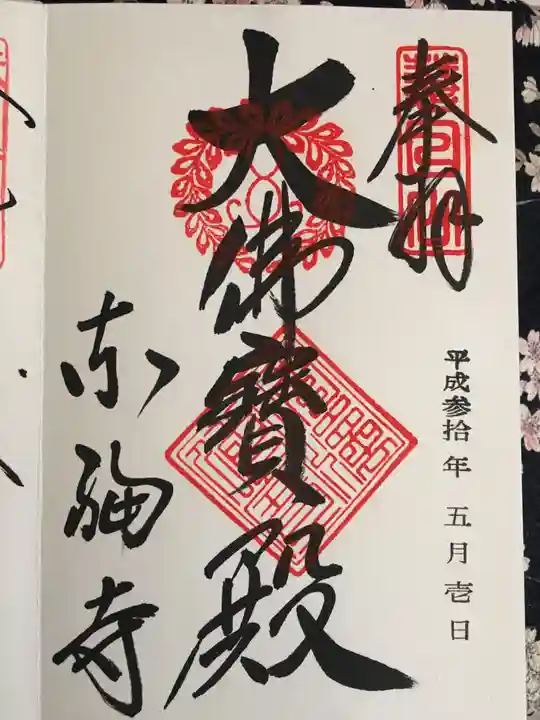 奉拝
平成参拾年 五月壱日
大佛寶殿
东福寺